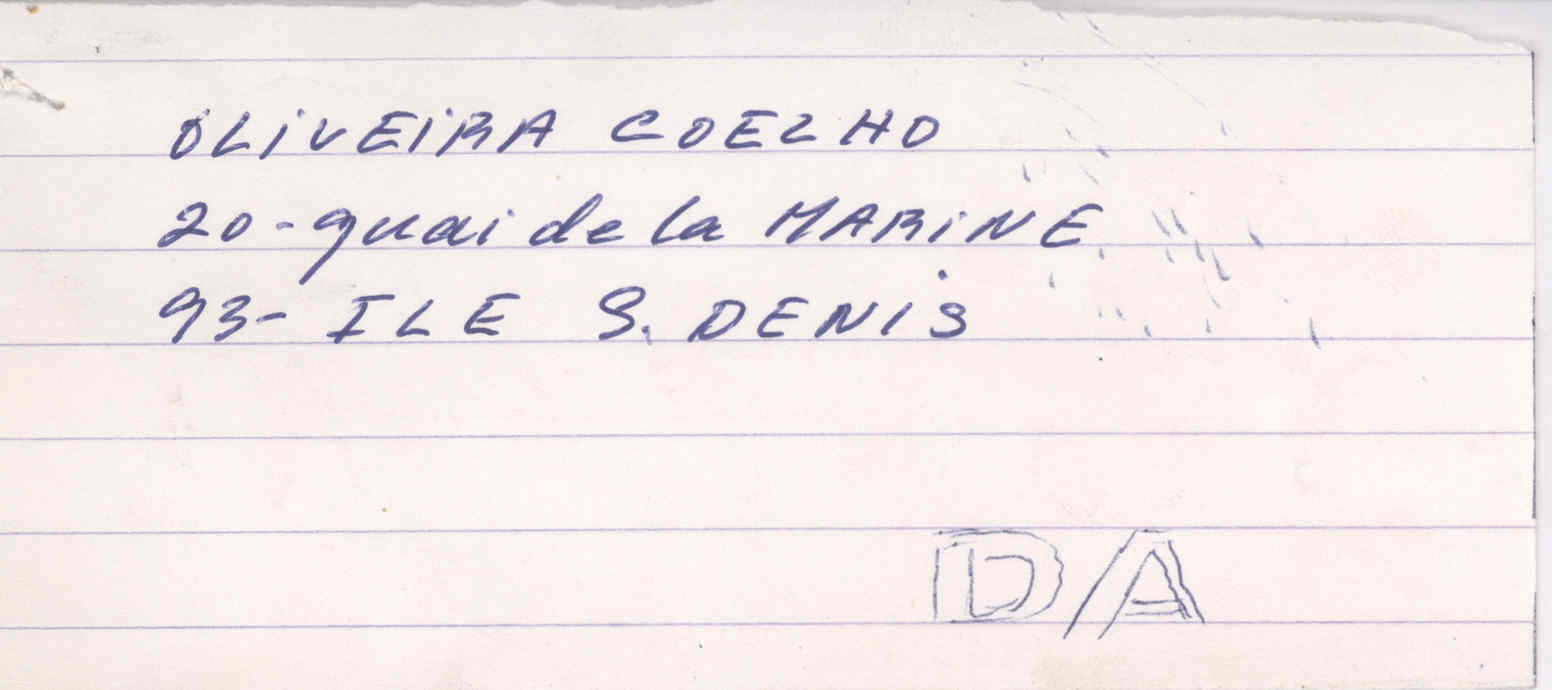 OLiVEiRA COELHO
20-quai de la MARiNE
93- ILE S. DENIS
DA